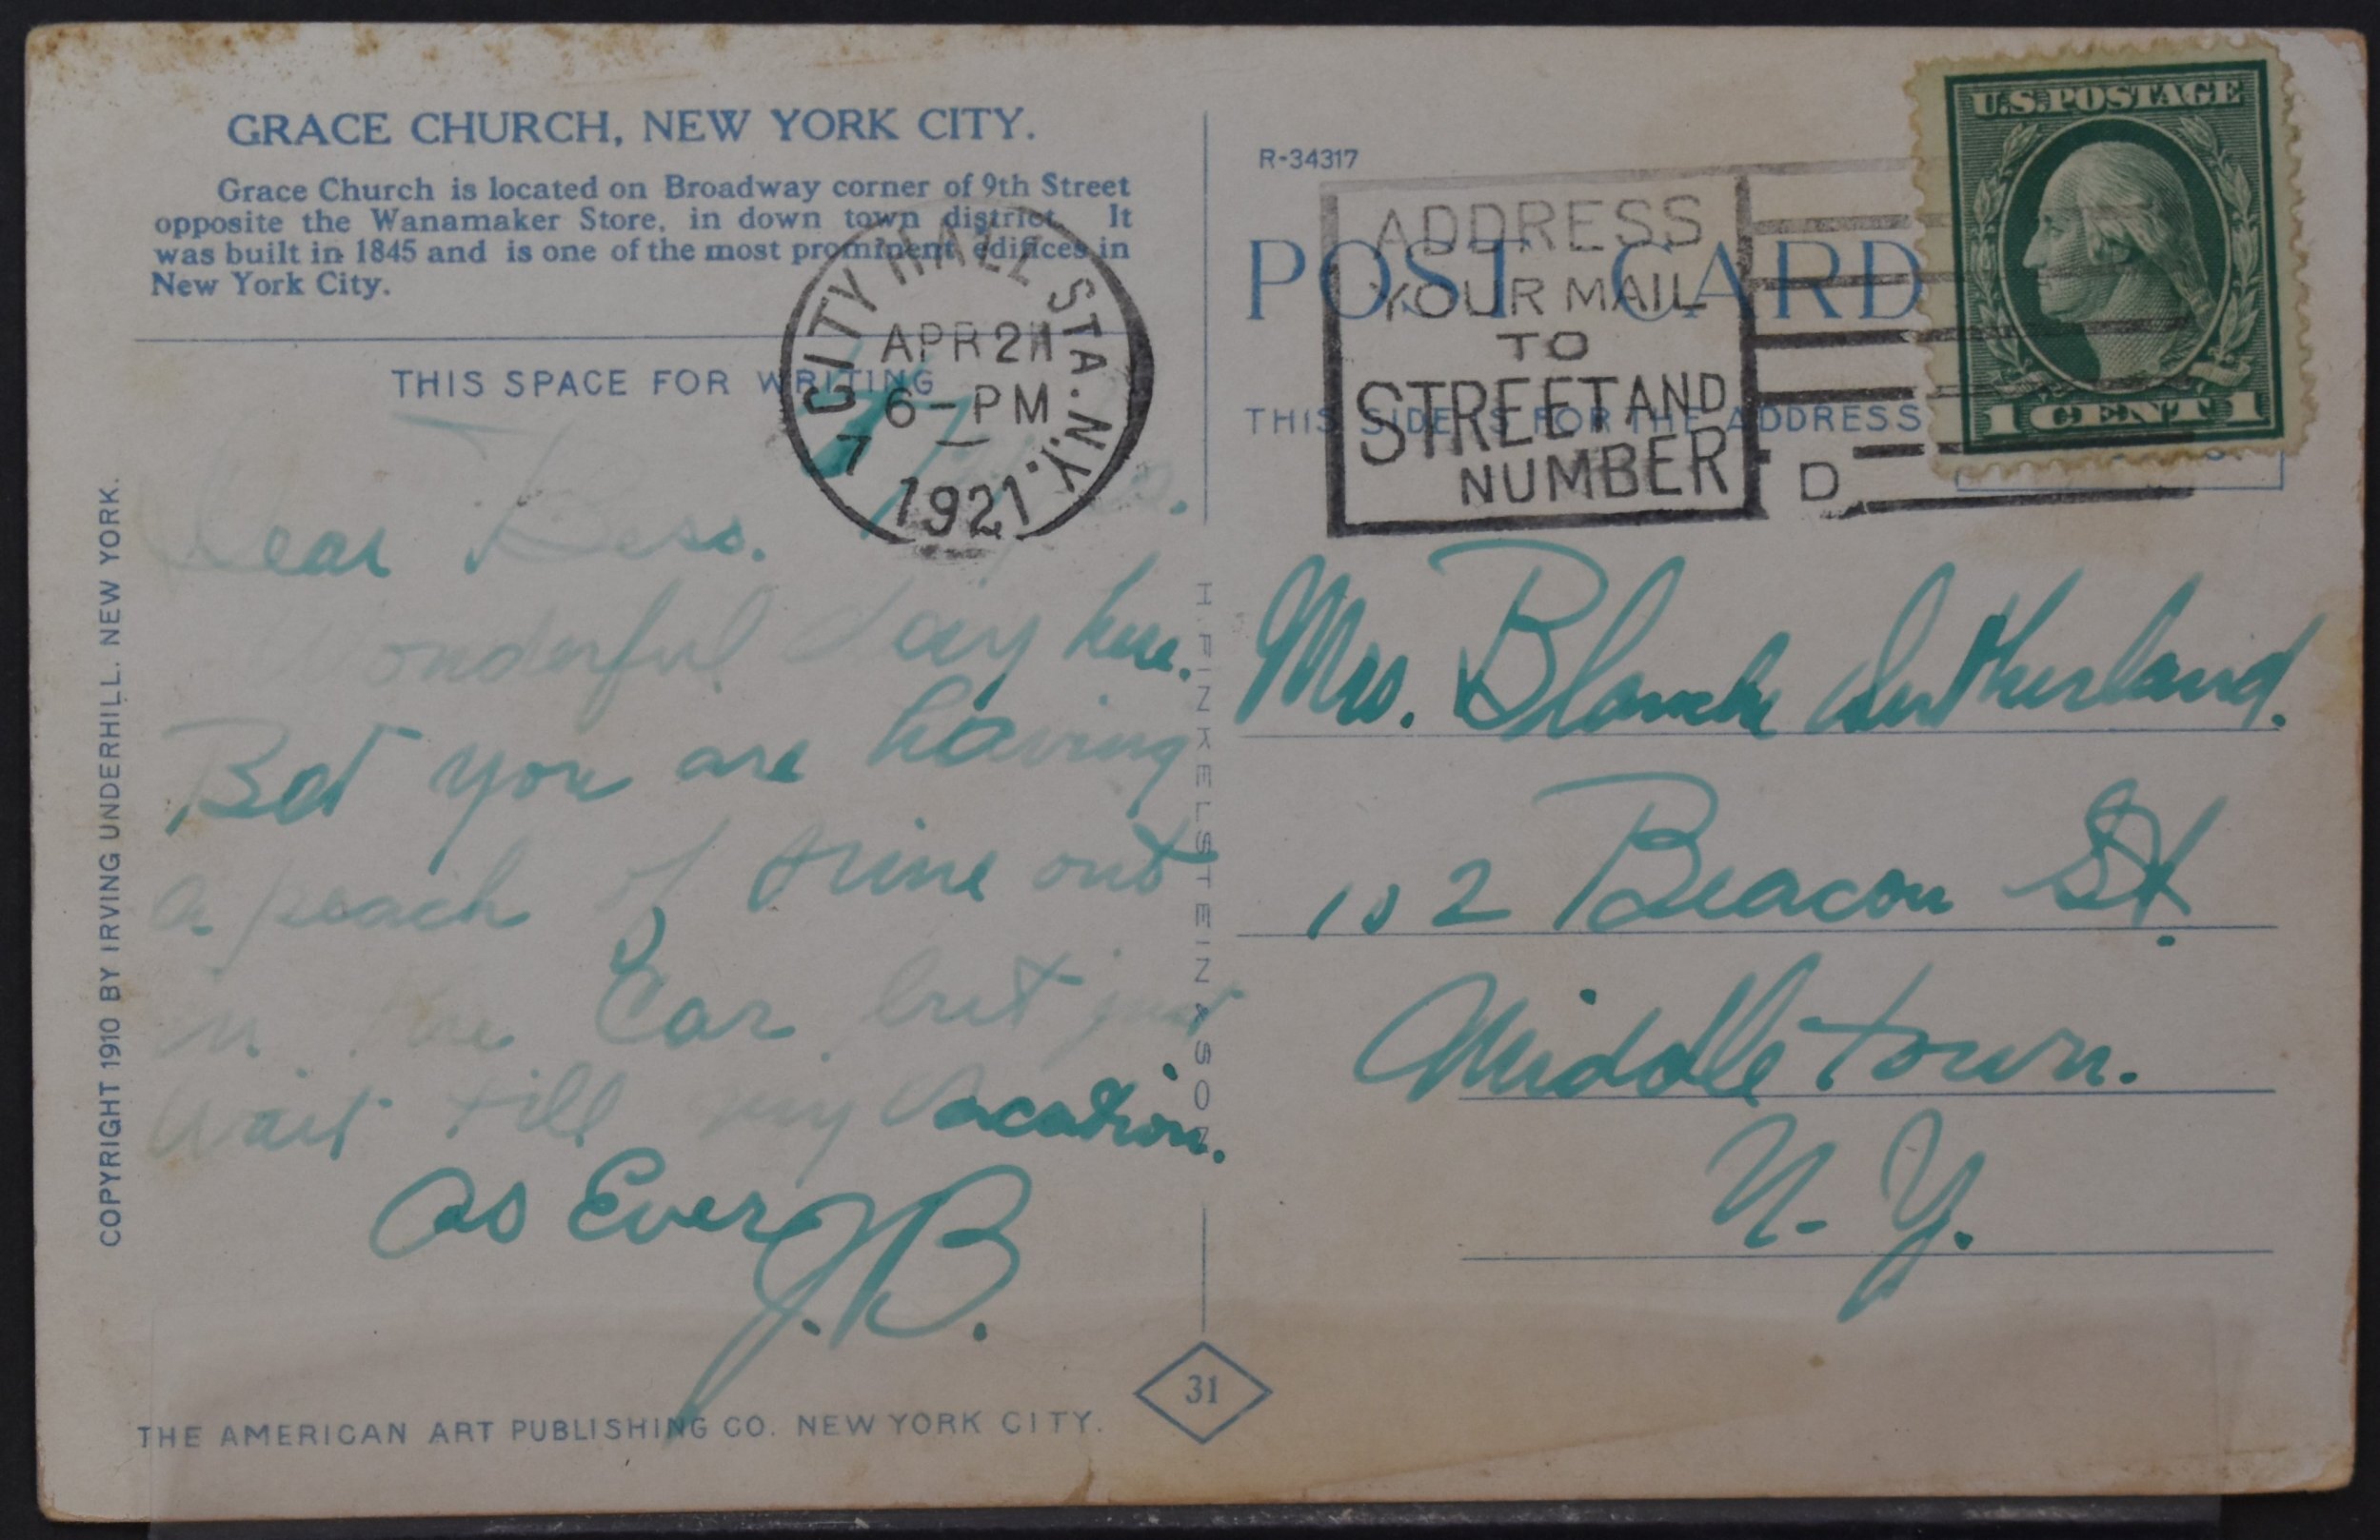 GRACE CHURCH, NEW YORK CITY.
Grace Church is located on Broadway corner of 9th Street
opposite the Wanamaker Store, in down town district. It
was built in 1845 and is one of the most prominent edifices in
New York City.
THIS SPACE FOR WRITING
CITY HALL STA. N.Y.
APR 21
6-PM
7
1921
Dear Bess.
Wonderful day here.
Bet you are having
a peach of time out
in the Car but just
wait till my vacation.
As Ever
J.B.
COPYRIGHT 1910 BY IRVING UNDERHILL. NEW YORK.
THE AMERICAN ART PUBLISHING CO. NEW YORK CITY.
H. FINKELSTEIN & SON
31
R-34317
POST CARD
THIS SIDE IS FOR THE ADDRESS
ADDRESS
YOUR MAIL
TO
STREET AND
NUMBER
D
U.S. POSTAGE
1 CENT 1
Mrs. Blanche Sutherland.
102 Beacon St.
Middletown.
N. Y.